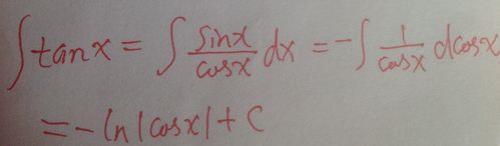 ∫tanx = ∫ sinx/cosx dx = -∫ 1/cosx dcosx
= -ln|cosx| + C